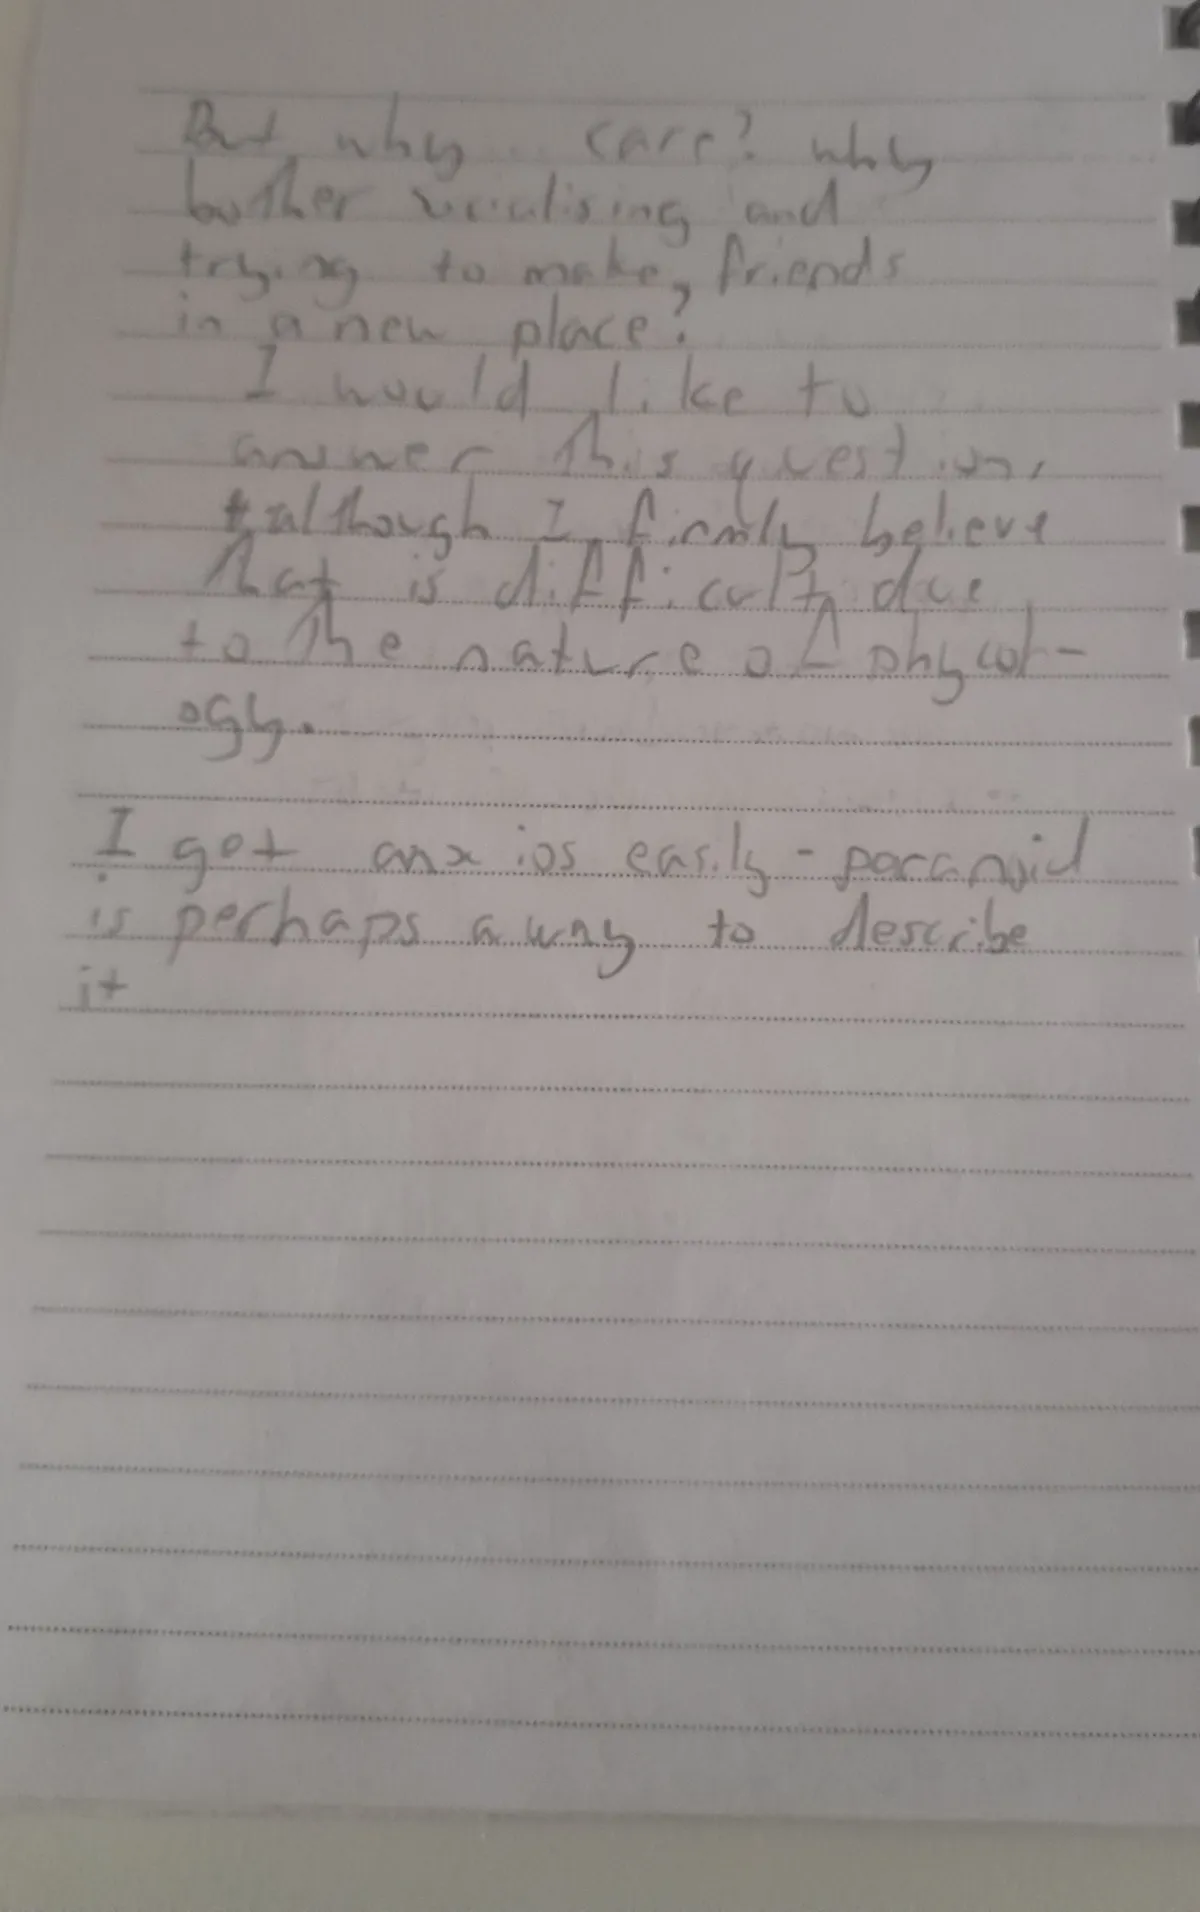 But why care? why
bother socialising and
trying to make friends
in a new place?
I would like to
answer this question,
although I firmly believe
that is difficult due
to the nature of phycol-
ogy.
I get anxios easily - paranoid
is perhaps a way to describe
it